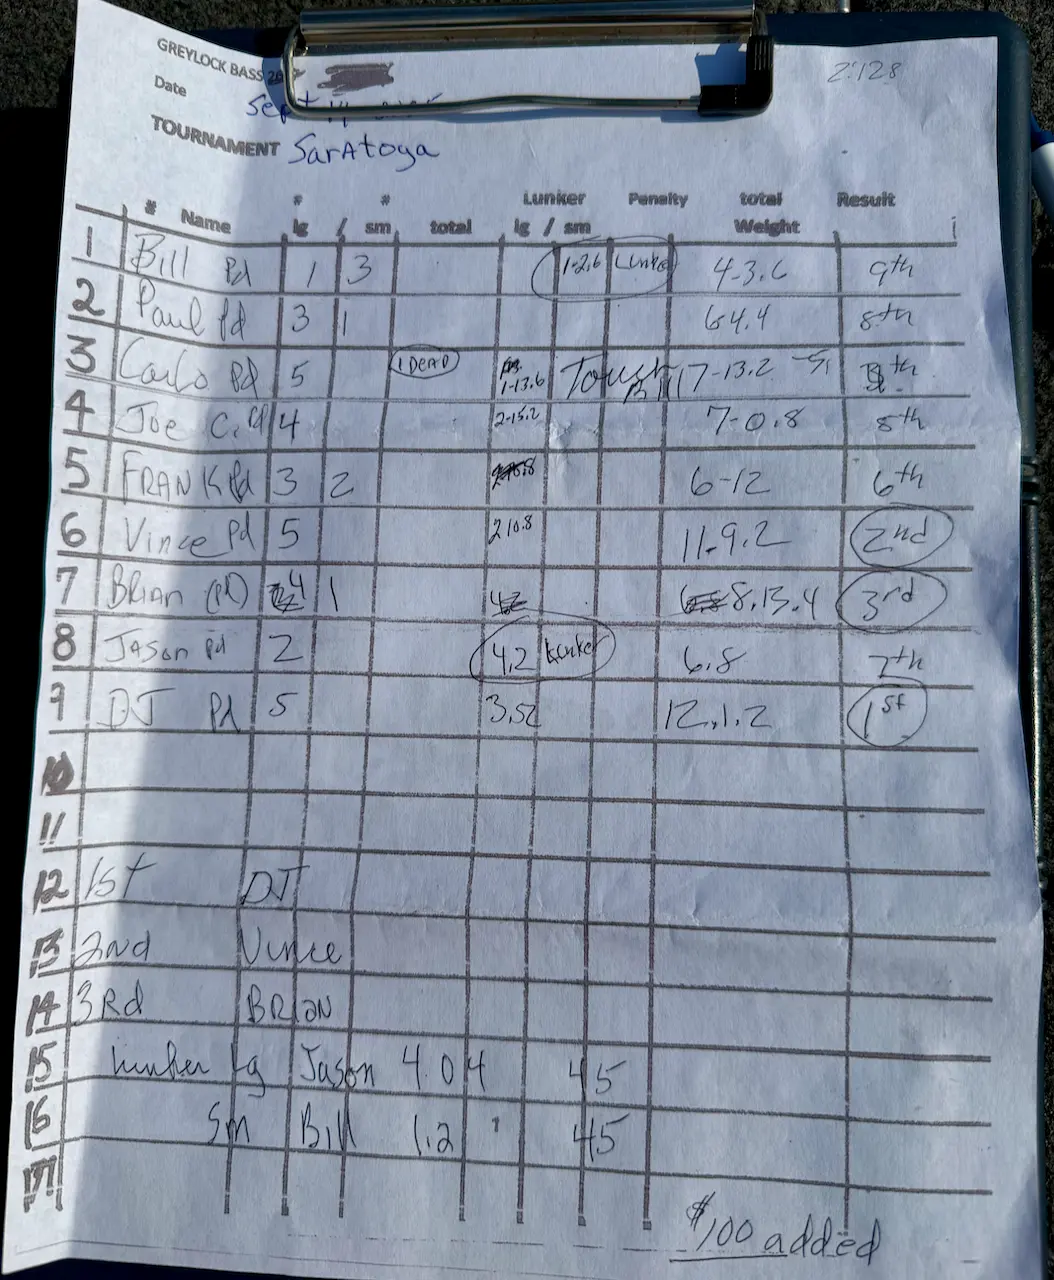 2.128
GREYLOCK BASS 20
Date Sept 14
TOURNAMENT Saratoga
# # Lunker Penalty total Result
# Name lg / sm total lg / sm Weight
1 Bill Pd 1 3 1-2.6 Lunker 4-3.6 9th
2 Paul Pd 3 1 6-4.4 8th
3 Carlo Pd 5 1 DEAD 1-13.6 Tough Bill 7-13.2 th
4 Joe C. Pd 4 2-15.2 7-0.8 5th
5 FRANK Pd 3 2 6-12 6th
6 Vince Pd 5 2 10.8 11.9.2 2nd
7 BRIAN (Pd) 4 1 8.13.4 3rd
8 JASON Pd 2 4.2 Lunker 6.8 7th
9 DJ Pd 5 3.52 12.1.2 1st
10
11
12 1st DJ
13 2nd Vince
14 3Rd BRIAN
15 lunker Lg Jason 4.04 45
16 Sm Bill 1.2 45
17
$100 added